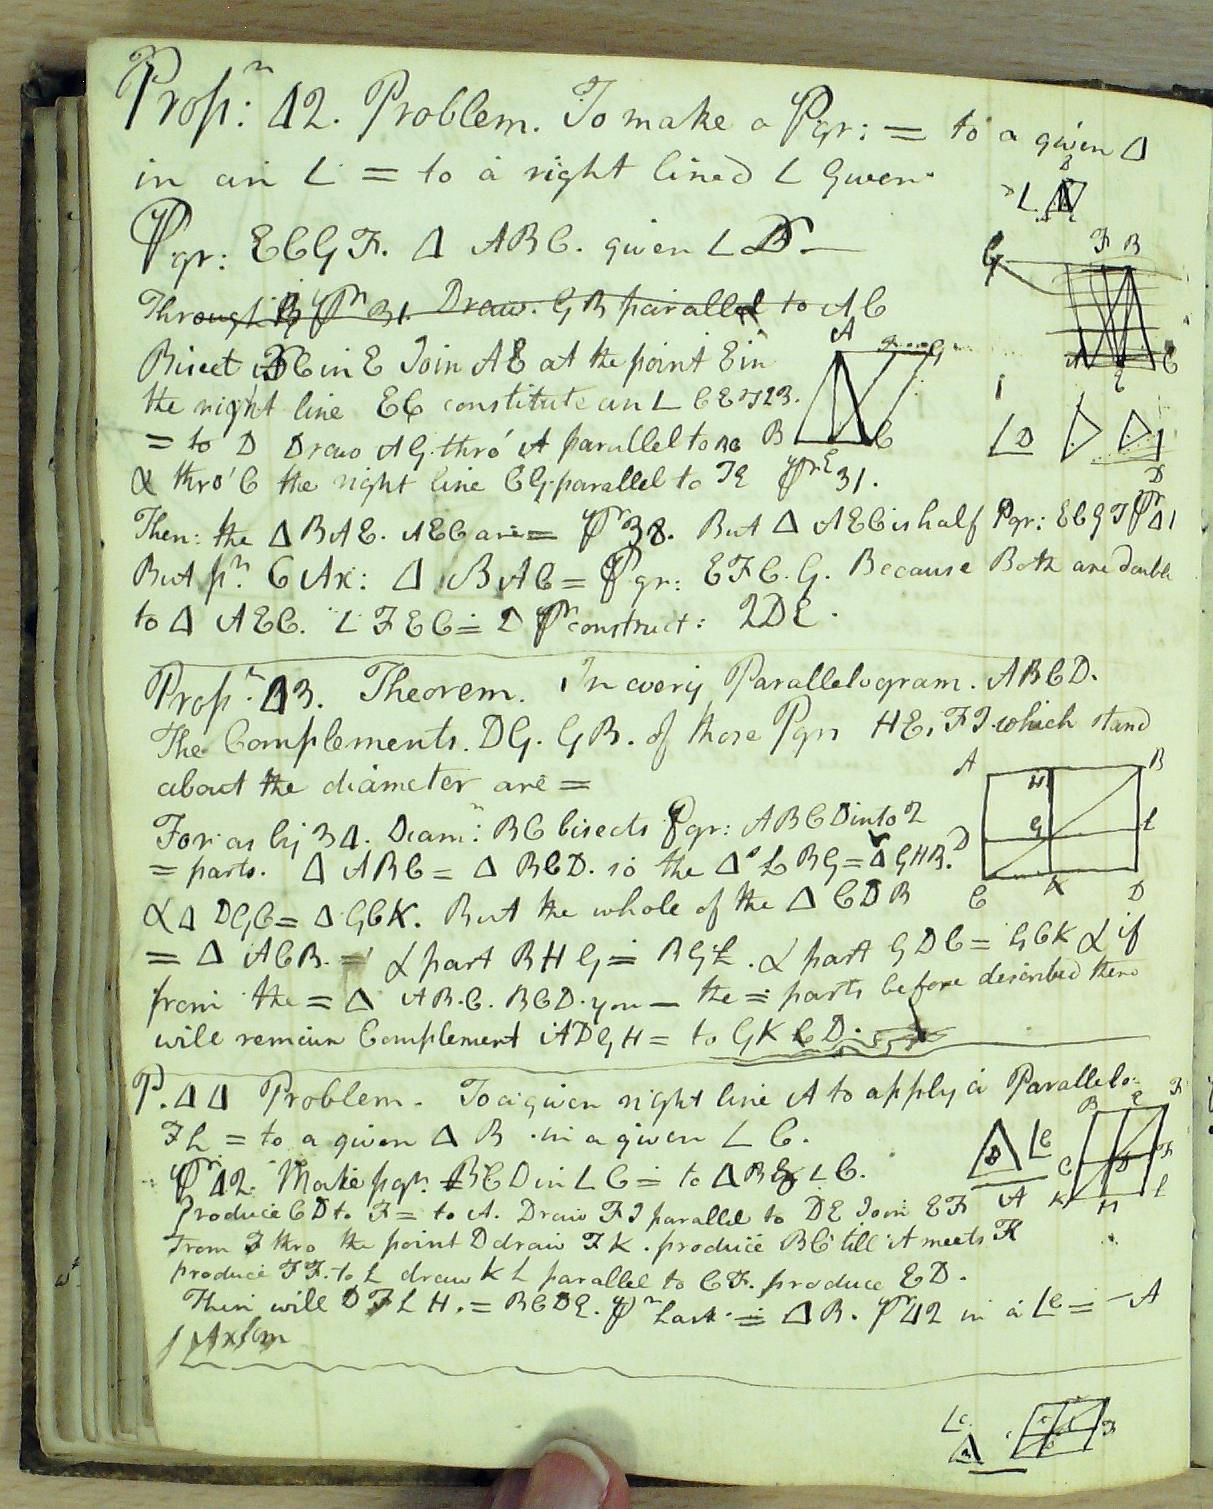 Propn: 42. Problem. To make a Pgr: = to a given Δ
in an L = to a right lined L Given
Pgr: ECGF. Δ ABC. given L D.
Through B Prn 31. Draw. GB parallel to AC
Bisect BC in E Join AE at the point E in
the right line EC constitute an L CEF 23.
= to D Draw AG thro' A parallel to BC
& thro' C the right line CG parallel to FE Pr 31.
Then: the Δ BAE. AEC are = Pr 38. But Δ AEC is half Pgr: ECGF Pr 41
But pn. 6 Ax: Δ BAC = Pgr: EFC.G. Because Both are double
to Δ AEC. L FEC = D Prn construct: QDE.
Propn. 43. Theorem. In every Parallelogram. ABCD.
The Complements. DG. GB. of those Pgrs HE, FI which stand
about the diameter are =
For as by 34. Diamn: BC bisects Pgr: ABCD into 2
= parts. Δ ABC = Δ BCD. so the Δs LBG = Δ GHB.
& Δ DGC = Δ GCK. But the whole of the Δ CDB
= Δ ACB. = & part BHG = BGL. & part GDC = GCK & if
from the = Δ AB.C. BCD. you – the = parts before described there
will remain Complement ADGH = to GK LD.
P. 44 Problem. To a given right line A to apply a Parallelo-
FL = to a given Δ B in a given L C.
Pr 42. Make pgr. BCD in L C = to Δ B & L C.
Produce CD to F = to A. Draw FI parallel to DE Join EF
From F thro the point D draw FK. produce BC till it meets FK
produce FF. to L draw KL parallel to CF. produce ED.
Then will DFLH. = BCDE. Prn Last = Δ B. Pr 42 in a L C = A